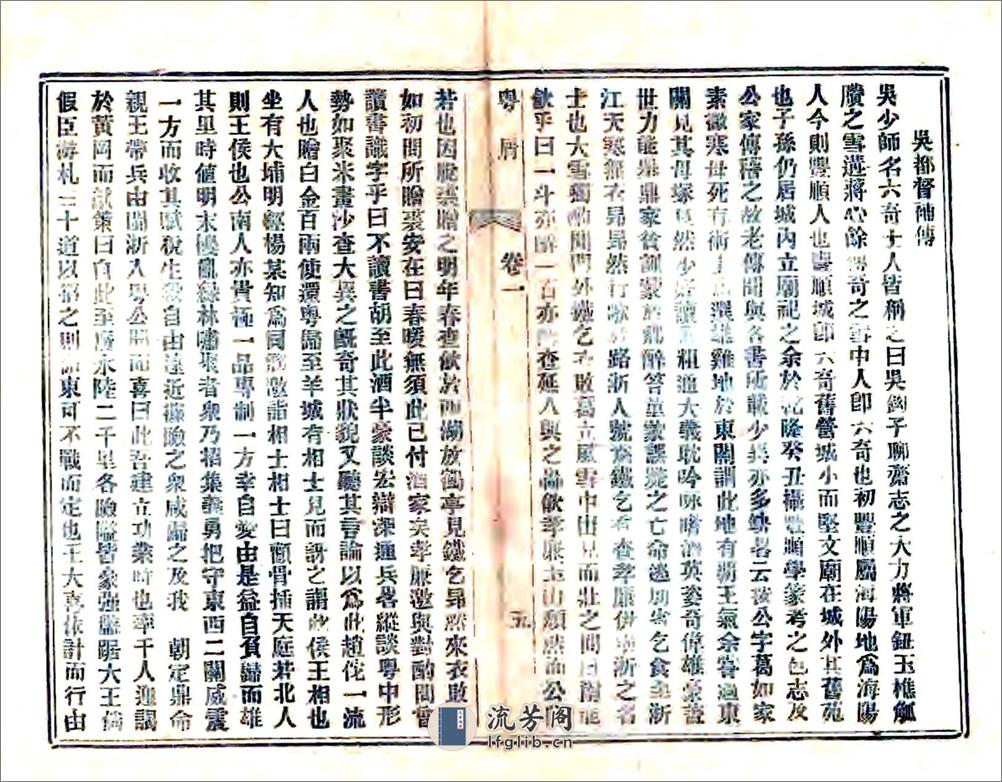 吳都督補傳
吳少師名六奇土人皆稱之曰吳鉤子聊齋志之大力將軍鈕玉樵觚
賸之雪遘蔣心餘傳奇之雪中人即六奇也初豐順屬海陽地爲海陽
人今則豐順人也豐順城即六奇舊營城小而堅文廟在城外其舊苑
也子孫仍居城內立廟祀之余於乾隆癸丑攝豐順學篆考之邑志及
公家傳稽之故老傳聞與各書所載少異亦多缺畧云按公字葛如家
素微寒母死有術士 選雄雞地於東關謂此地有霸王氣余客過東
關見其母塚 然少好讀 粗通大義耽吟咏嗜酒英姿奇偉雄豪蓋
世力能舉鼎家貧訓蒙於 醉笞童蒙誤斃之亡命逃 乞食至浙
江天寒無衣昂昂然行歌 路浙人號爲鐵乞 查孝廉伊璜浙之名
士也大雪獨酌聞門外鐵乞 敗葛立風雪中出見而壯之問曰能
飲乎曰一斗亦醉一石亦醉查延入與之轟飲孝廉玉山頹然而公
粤屑 卷一 五
若也因脫裘贈之明年春查飲於西湖放鶴亭見鐵乞昂然來衣敗
如初問所贈裘安在曰春暖無須此已付酒家矣孝廉邀與對酌問曾
讀書識字乎曰不讀書胡至此酒半豪談宏辯深通兵畧縱談粤中形
勢如聚米畫沙查大異之旣奇其狀貌又聽其言論以爲此趙佗一流
人也贈白金百兩使還粤歸至羊城有相士見而訝之謂此侯王相也
坐有大埔明經楊某知爲同 邀詣相士相士曰顴骨插天庭若北人
則王侯也公南人亦貴極一品專制一方幸自愛由是益自負歸而雄
其里時値明末擾亂綠林嘯聚者衆乃招集義勇把守東西二關威震
一方而收其賦稅生殺自由遠近 險之衆咸歸之及我 朝定鼎命
親王帶兵由閩浙入粤公聞而喜曰此吾建立功業時也率千人迎謁
於黃岡而獻策曰自此至廣水陸二千里各險隘皆豪强盤踞大王倘
假臣游札三十道以招之則 東可不戰而定也王大喜依計而行由